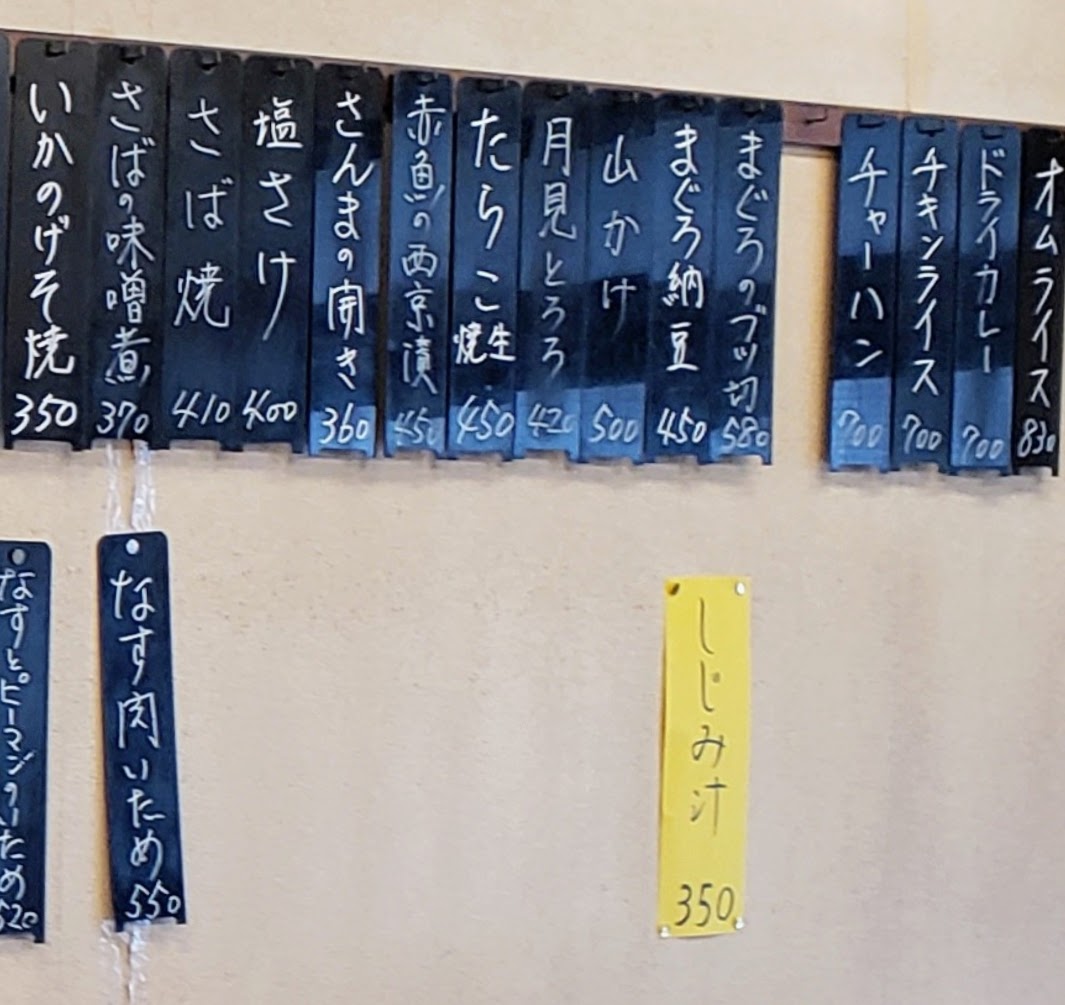 いかのげそ焼 350
さばの味噌煮 370
さば焼 410
塩さけ 400
さんまの開き 360
赤魚の西京漬 450
たらこ 焼生 450
月見とろろ 420
山かけ 500
まぐろ納豆 450
まぐろのブツ切 580
チャーハン 700
チキンライス 700
ドライカレー 700
オムライス 830
なすとピーマンのいため 520
なす肉いため 550
しじみ汁 350